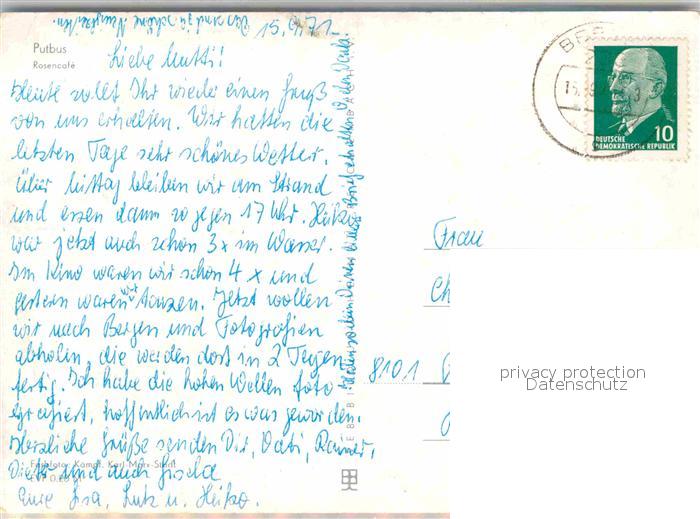 Das sind ja schöne
15.9.71
Putbus
Rosencafé
Liebe Mutti!
Heute sollt Ihr wieder einen Gruß
von uns erhalten. Wir hatten die
letzten Tage sehr schönes Wetter.
Über Mittag bleiben wir am Strand
und essen dann so gegen 17 Uhr. Heiko
war jetzt auch schon 3x im Wasser.
Im Kino waren wir schon 4 x und
gestern waren wir tanzen. Jetzt wollen
wir nach Bergen und Fotografien
abholen, die werden dort in 2 Tagen
fertig. Ich habe die hohen Wellen foto
grafiert, hoffentlich ist es was geworden.
Herzliche Grüße senden Dir, Vati, Rainer,
Dieter und auch Gisela
Eure Isa, Lutz u. Heiko.
Farbfoto: Kampf, Karl-Marx-Stadt
EVP 0,20 M
Haben soeben Deinen lieben Brief erhalten. Vielen Dank.
DEUTSCHE
DEMOKRATISCHE REPUBLIK
10
Frau
Ch
8101
privacy protection
Datenschutz